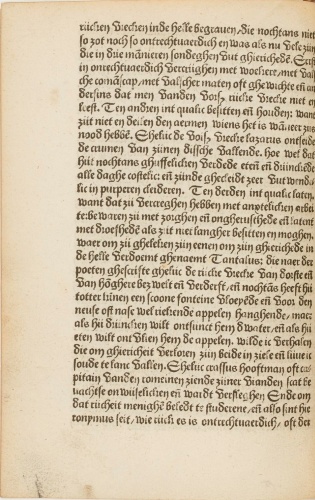 rücken Vrecken inde helle begrauen/die nochtans niet
so zot noch so ontrechtuaerdich en was als nu vele zün
die in drie manieren sondeghen vut ghiericheden. Eerst
in onrechtuaerdich vercrijghen met woekere/met val
sche comãscap/met valscher maten oft ghewichte eñ an
dersins dat men vanden voirs. rücke vrecke niet en
leest. Ten andren int qualic besitten eñ houden: want
zijt niet en deilen den aermen wiens het is wãneer zijs
nood hebbẽ. Ghelijc de voirs. vrecke lazarus ontseide
de crumen van zijnen dissche vallende. hoe wel dat
hij nochtans ghijffelicken verdede etẽn eñ drinckẽde
alle daghe costelic: eñ zijnde ghecleidt zeer vutwendi
lic in purperen cleederen. Ten derden int qualic laten.
want dat zij vercreghen hebben met arvtelicken arbei
te: bewaren zij met zorghen eñ ongheruschede eñ latent
met droefhede als zijt niet langher besitten en moghen.
waer om zij gheleken zijn eenen om zijn ghierichede in
de helle verdoemt ghenaemt Tantalus: die naer der
poeten ghescrifte ghelijc de rücke vrecke van dorste eñ
van hõghere bezwelt eñ verderft/eñ nochtãs heeft hij
totter kinnen een scoone fonteine vloeyẽde eñ voor den
neuse oft nase wel riekende appelen hanghende/maer
als hij drincken wilt ontsinct hem dwater/eñ als hij
eten wilt ontvlien hem de appelen. wilde ic verhalen
die om ghiericheit verloren zijn beide in ziele eñ lijue ic
soude te lanc vallen. Ghelijc crassus hooftman oft ca
pitain vanden romeinen ziende zijner vianden scat be
gaechtse onwijselicken eñ waerdt versleghen Ende om
dat rijcheit menighẽ beledt te studerene/eñ also sint hie
ronymus seit/wie rück es is ontrechtuaerdich/oft der